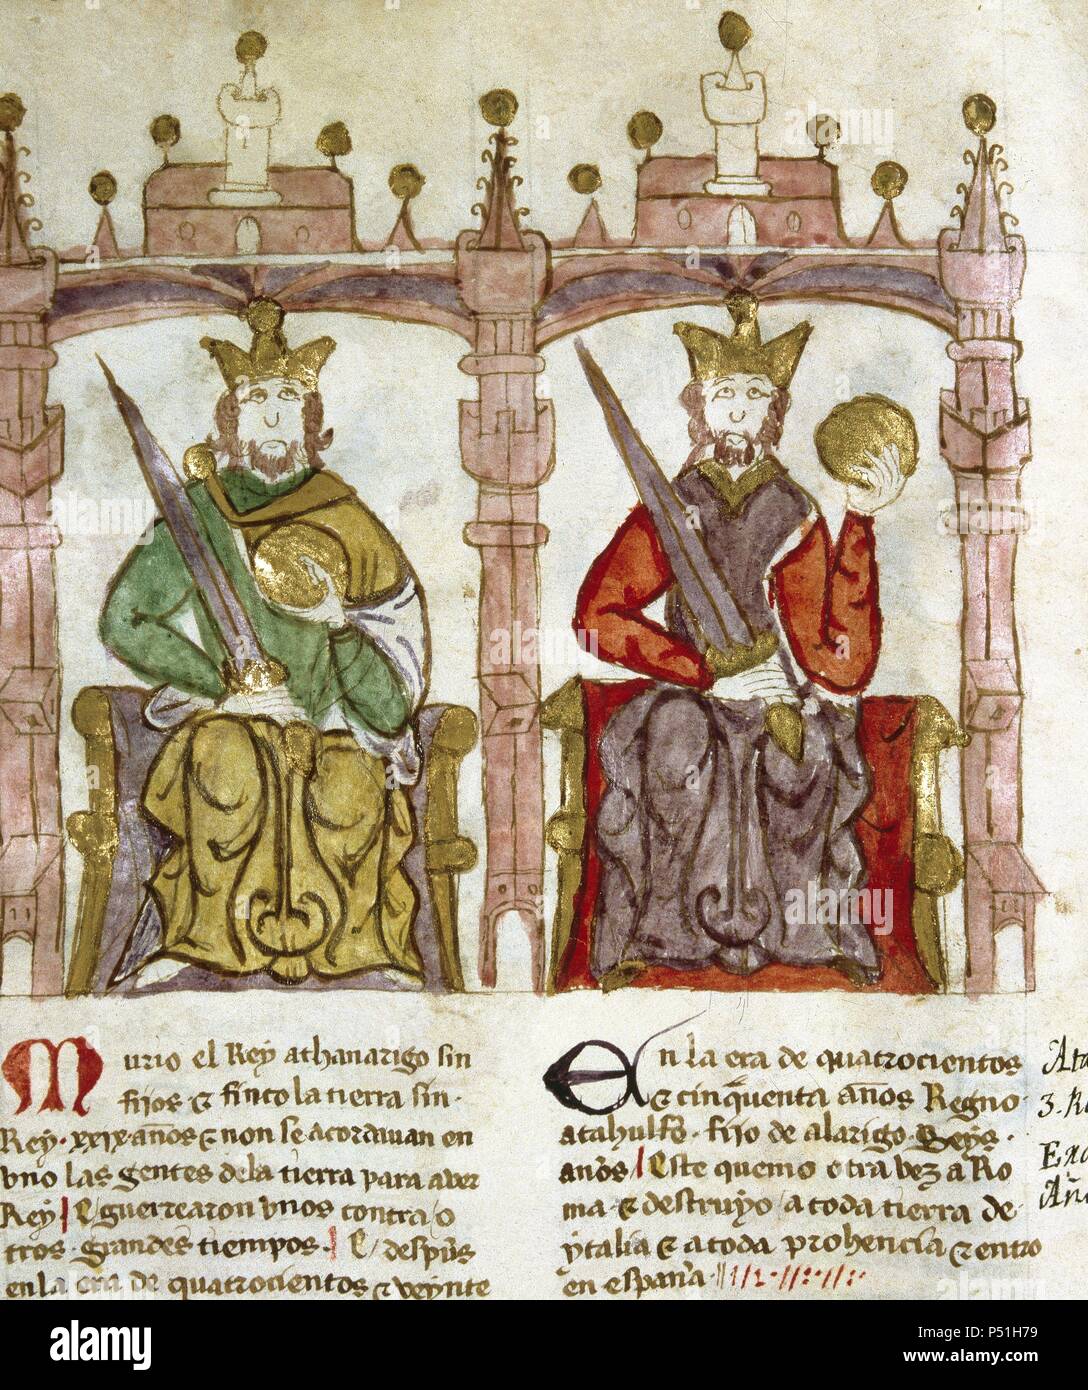 Murio el Rey athanarigo sin
fijos & finco la tierra sin
Rey · xxix · años & non se acordauan en
vno las gentes dela tierra para aver
Rey | E guerrearon vnos contra o
tros · grandes tiempos · | E despues
en la era de quatrocientos & veynte
En la era de quatrocientos
& cinquenta años Regno
atahulfo · fijo de alarigo · seys ·
años | Este quemo otra vez a Ro
ma · & destruyo / a toda tierra de
ytalia & a toda prohencia & entro
en españa
Ata
3. R
Añ
alamy
Image ID: P51H79
www.alamy.com